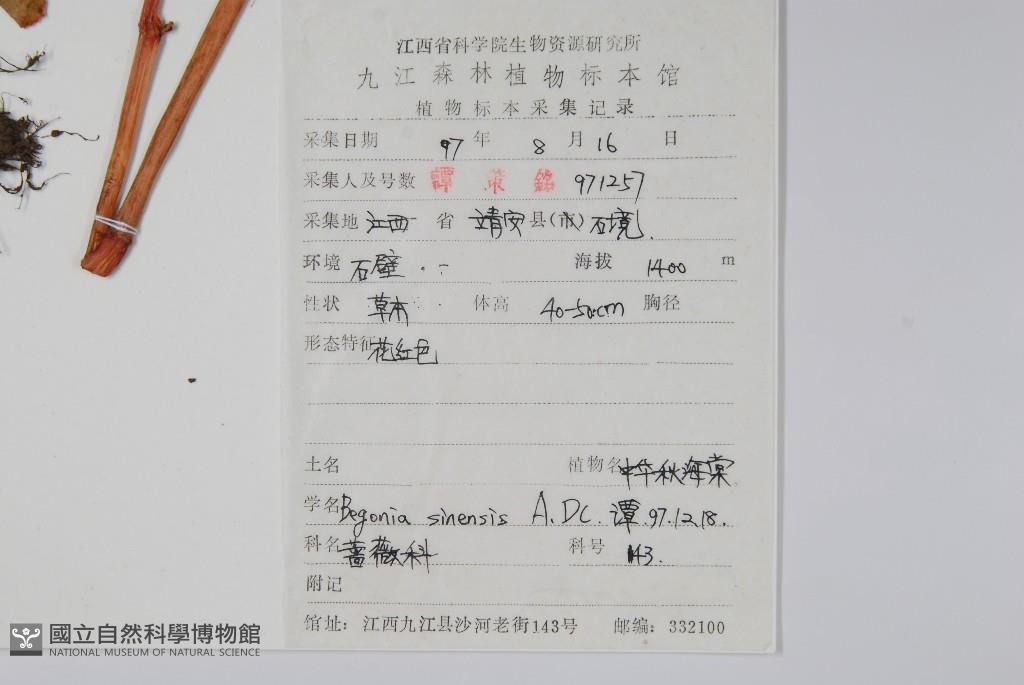 江西省科学院生物资源研究所
九江森林植物标本馆
植物标本采集记录
采集日期 97 年 8 月 16 日
采集人及号数 譚策銘 971257
采集地 江西 省 靖安 县(市) 石境
环境 石壁 海拔 1400 m
性状 草本 体高 40-50cm 胸径
形态特征 花红色
土名 植物名 中华秋海棠
学名 Begonia sinensis A.DC. 谭.97.12.18.
科名 蔷薇科 科号 143.
附记
馆址: 江西九江县沙河老街143号 邮编: 332100
國立自然科學博物館
NATIONAL MUSEUM OF NATURAL SCIENCE